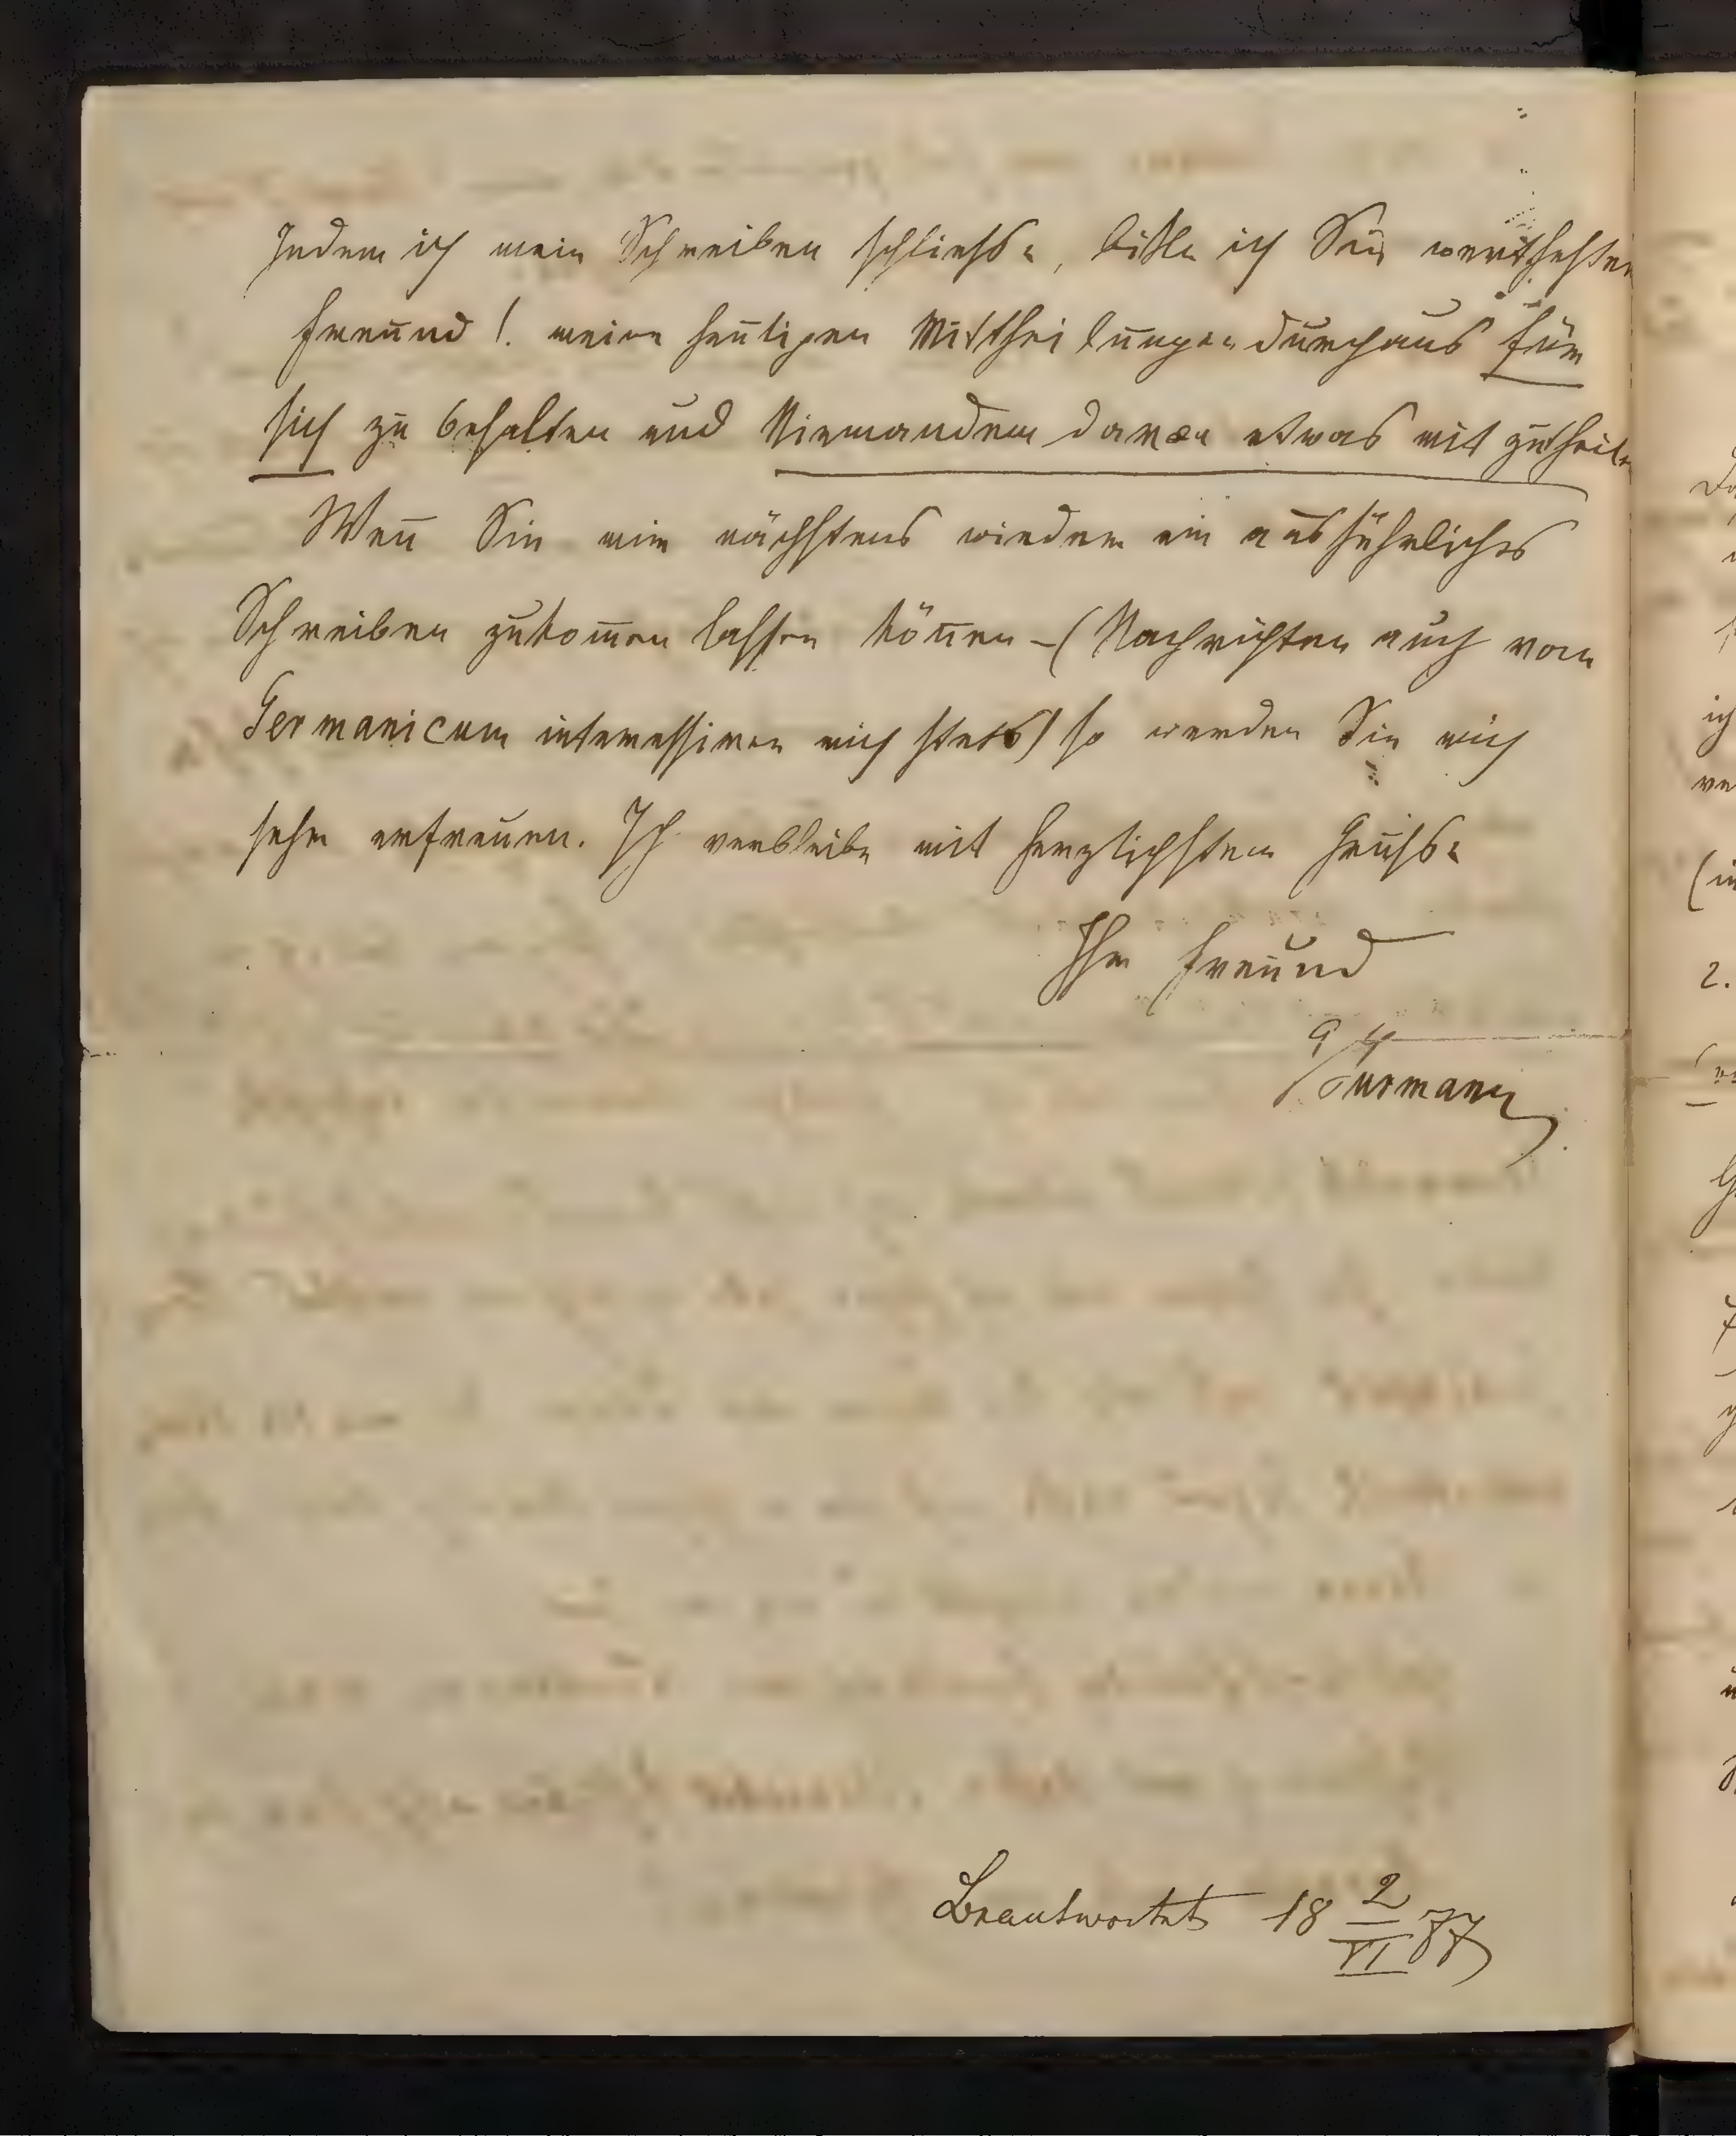 Indem ich mein Schreiben schliesse, bitte ich Sie, werthester
Freund!. meine heutigen Mittheilungen durchaus für
sich zu behalten und Niemandem davon etwas mit zutheilen
Weñ Sie mir nächstens wieder ein ausführliches
Schreiben zukom̄en lassen kön̄en – (Nachrichten auch vom
Germanicum interessiren mich stets) so werden Sie mich
sehr erfreuen. Ich verbleibe mit herzlichstem Grusse
Ihr Freund
Beantwortet 18 2/VI 77